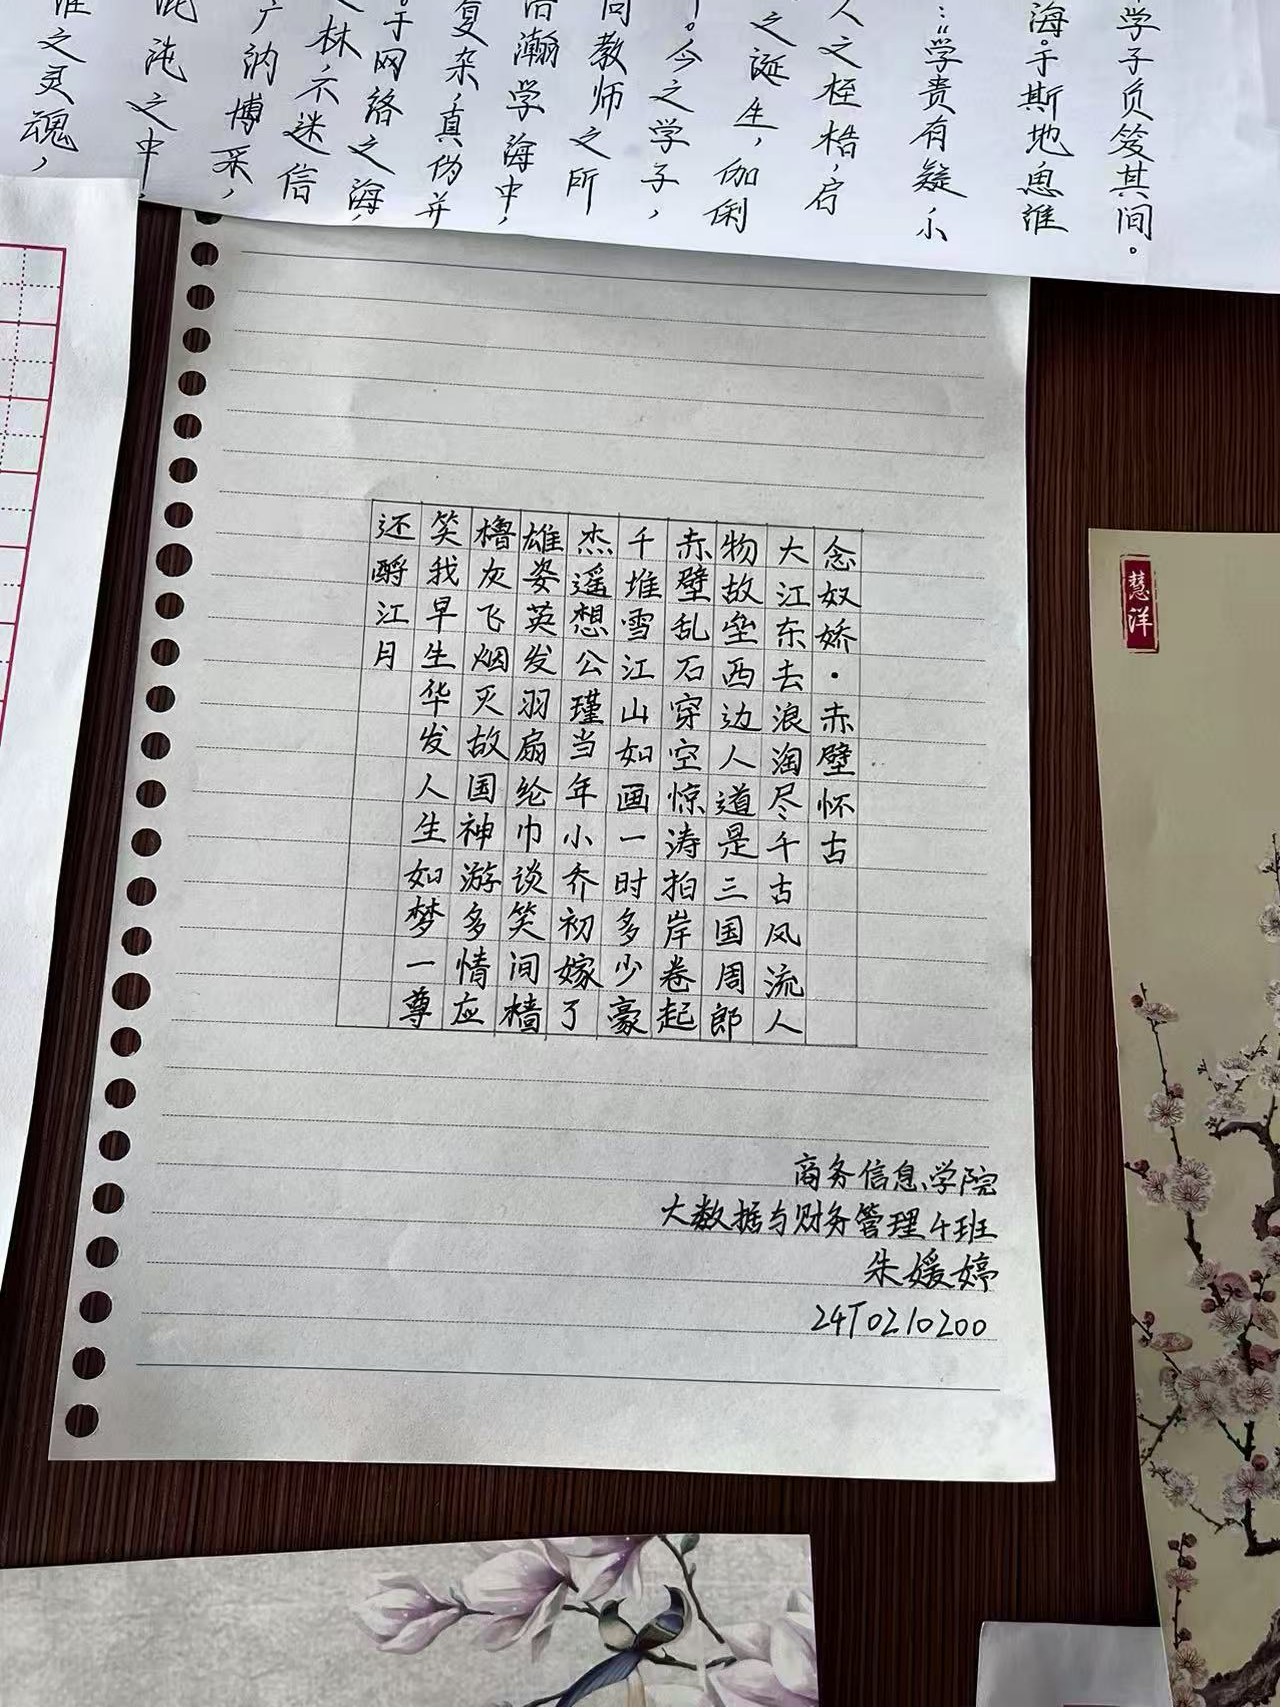 学子负笈其间。
海。于斯地思维
：“学贵有疑，小
人之桎梏，启
之诞生，伽俐
。今之学子，
问教师之所
瀚学海中，
复杂，真伪并
。于网络之海，
林，不迷信
广纳博采，
混沌之中，
维之灵魂，
念奴娇·赤壁怀古
大江东去浪淘尽千古风流人
物故垒西边人道是三国周郎
赤壁乱石穿空惊涛拍岸卷起
千堆雪江山如画一时多少豪
杰遥想公瑾当年小乔初嫁了
雄姿英发羽扇纶巾谈笑间樯
橹灰飞烟灭故国神游多情应
笑我早生华发人生如梦一尊
还酹江月
商务信息学院
大数据与财务管理4班
朱媛婷
24T0210200
慧洋